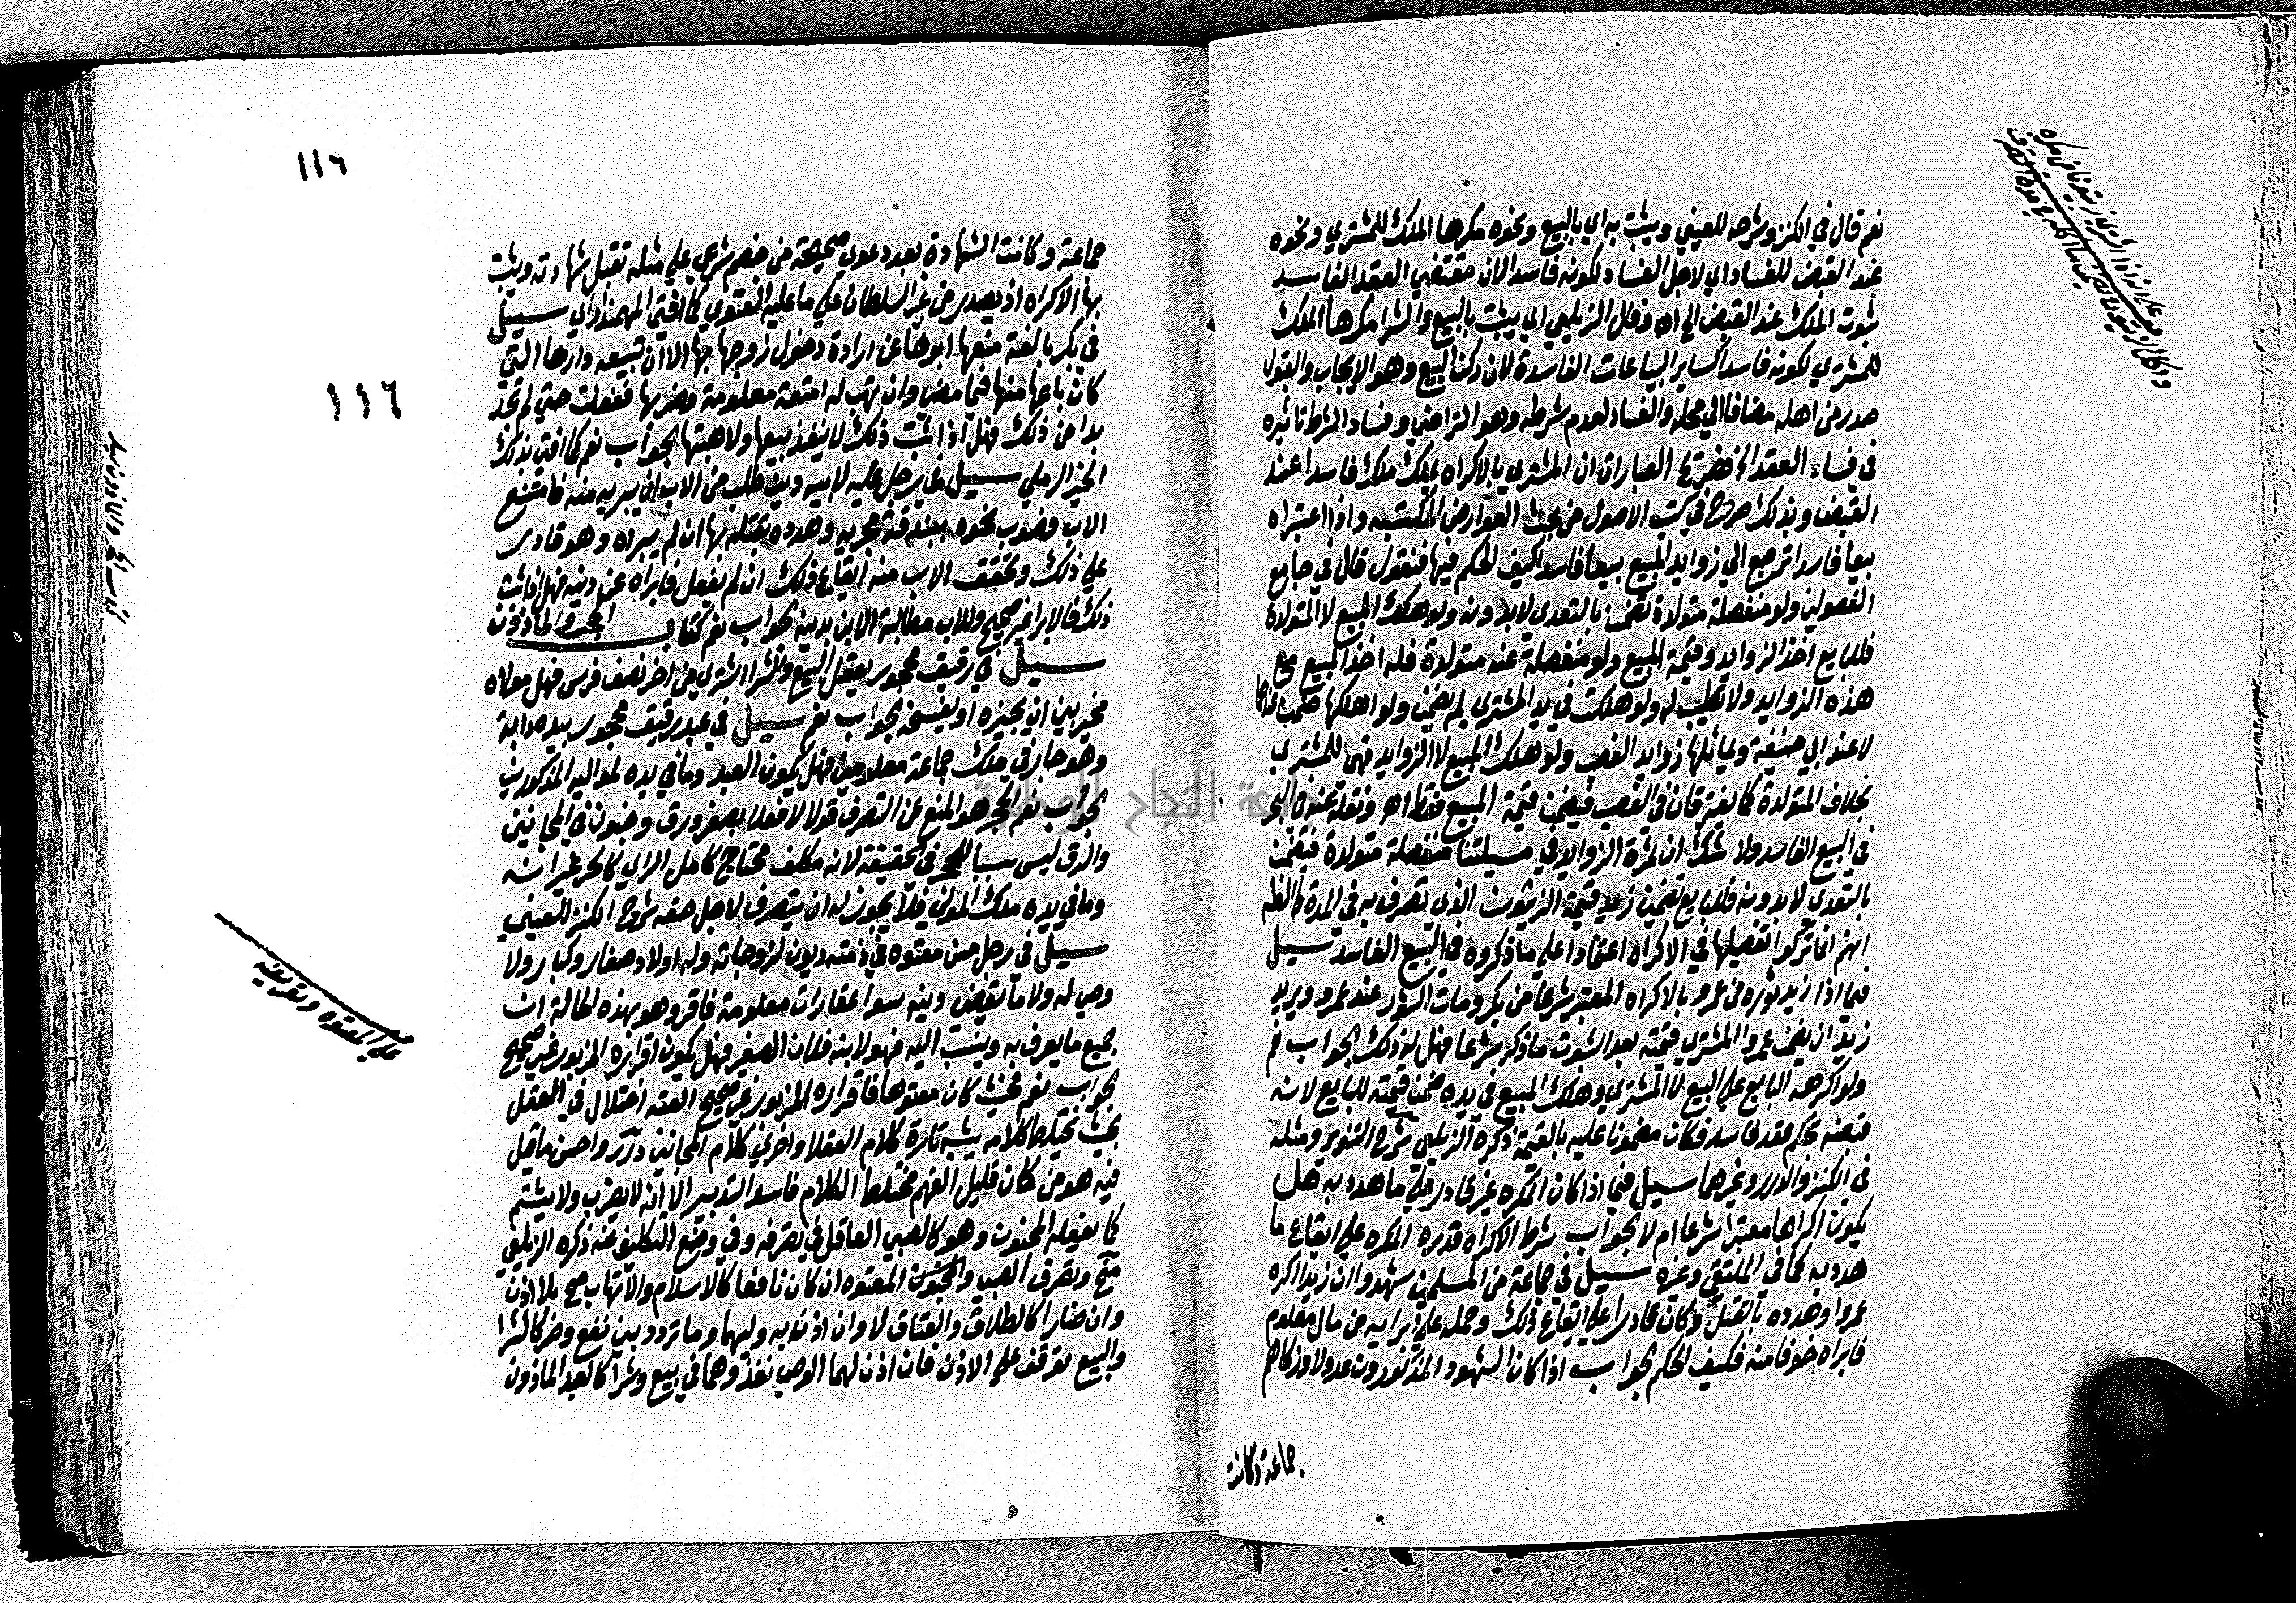 نعم قال في الكنز وشرحه للعيني ويثبت به اي بالبيع ونحوه مكرها الملك للمشتري ونحوه
عند القبض للفساد اي لاجل الفساد لكونه فاسدا لان مقتضي العقد الفاسد
ثبوت الملك عند القبض الخ اه وقال الزيلعي اي يثبت بالبيع والشرا مكرها الملك
للمشتري لكونه فاسدا كساير البياعات الفاسدة لان ركن البيع وهو الايجاب والقبول
صدر من اهله مضافا الي محله والفساد لعدم شرطه وهو التراضي وفساد الشرط تاثيره
في فساد العقد الخ فتحرر العبارات ان المشتري بالاكراه يملك ملكا فاسدا عند
القبض وبذلك صرح في كتب الاصول من بحث العوارض المكتسبه واذا اعتبراه
بيعا فاسدا ترجع الي زوايد المبيع بيعا فاسدا كيف الحكم فيها فنقول قال في جامع
الفصولين ولو منفصلة متولدة تضمن بالتعدي لا بدونه ولو هلك المبيع لا المتولدة
فللبايع اخذ الزوايد وقيمة المبيع ولو منفصلة غير متولدة فله اخذ المبيع مع
هذه الزوايد ولا تطيب له ولو هلكت في يد المشتري لم يضمن ولو اهلكها ضمن عندهما
لا عند ابي حنيفة وتمامها زوايد الغصب ولو هلك المبيع لا الزوايد فهي للمشتري
بخلاف المتولدة كما يفترقان في الغصب فيضمن قيمة المبيع فقط اه ونقله عنه في البحر
في البيع الفاسد ولا شك ان ثمرة الزوايد في مسيلتنا منفصلة متولدة فيضمن
بالتعدي لا بدونه فللبايع تضمين زيد قيمة الزيتون الذي تصرف به في المدة والظاهر
انهم انما تركوا تفصيلها في الاكراه اعتمادا علي ما ذكروه في البيع الفاسد سيل
فيما اذا زيد ثوره من عمرو بالاكراه المعتبر شرعا من بكر ومات الثور عند عمرو ويريد
زيد ان يضمن عمروا المشتري قيمته بعد الثبوت ما ذكر شرعا فهل له ذلك الجواب نعم
ولو اكره البايع علي البيع لا المشتري وهلك المبيع في يده ضمن قيمته للبايع لانه
قبضه بحكم عقد فاسد فكان مضمونا عليه بالقيمة ذكره الزيلعي شرح التنوير ومثله
في الكنز والدرر وغيرهما سيل فيما اذا كان المكره غير قادر علي ما هدد به هل
يكون اكراها معتبرا شرعا ام لا الجواب شرط الاكراه قدرة المكره علي ايقاع ما
هدد به كما في الملتقي وغيره سيل في جماعة من المسلمين شهدوا ان زيدا اكره
عمروا وهدده بالقتل وكان قادرا علي ايقاع ذلك وحمله علي ابرايه من مال معلوم
فابراه خوفا منه فكيف الحكم الجواب اذا كان الشهود المذكورون عدولا وزكاهم
جماعة وكانت
١١٦
١١٦
جماعة وكانت الشهادة بعد دعوي صحيحة من خصم شرعي علي مثله تقبل شهادته ويثبت
بها الاكراه اذ يصدر من غير السلطان علي ما عليه الفتوي كما افتي المهمنداري سيل
في بكر بالغة منعها ابوها عن ارادة دخول زوجها بها الا ان تبيعه دارها التي
كان باعها منها فيما مضي وان تهب له امتعة معلومة وضربها ففعلت حتي لم تجد
بدا من ذلك فهل اذا ثبت ذلك لا ينفذ بيعها ولا هبتها الجواب نعم كما افتي بذلك
الخير الرملي سيل في رجل عليه لابيه دين طلب من الاب ان يبريه منه فامتنع
الاب فصوب نحوه ببندقة مجربه وهدده بقتله بها ان لم يبراه وهو قادر
علي ذلك وتحقق الاب منه ايقاع ذلك ان لم يفعل فابراه عن دينه فهل اذا ثبت
ذلك فالابرا غير صحيح وللاب مطالبة الابن بدينه الجواب نعم كتاب الحجر والماذون
سيل في رقيق محجور يعقل البيع والشرا اشتري من اخر نصف فرس فهل مولاه
مخير بين ان يجيزه او يفسخه الجواب نعم سيل في عبد رقيق محجور بيده دابة
وهو جار في ملك جماعة معلومين فهل يكون العبد وما في يده لمواليه المذكورين
الجواب نعم الحجر هو المنع عن التصرف قولا لا فعلا بصغر ورق وجنون في المجانين
والرق ليس سببا للحجر في الحقيقة لانه مكلف محتاج كامل الراي كالحر غير انه
وما في يده ملك المولي فلا يجوز له ان يتصرف لاجل حقه شرح الكنز للعيني
سيل في رجل مسن معتوه في ذمته ديون لزوجاته وله اولاد صغار وكبار ولا
وصي له ولا ما يقضي دينه سوا عقارات معلومة فاقر وهو بهذه الحالة ان
جميع ما يعرف به وينسب اليه فهو لابنه فلان الصغير فهل يكون اقراره المزبور غير صحيح
الجواب نعم فحيث كان معتوها فاقراره المزبور غير صحيح العته اختلال في العقل
بحيث يختلط كلامه يشبه تارة كلام العقلا واخري كلام المجانين درر واحسن ما قيل
فيه هو من كان قليل الفهم مختلط الكلام فاسد التدبير الا انه لا يضرب ولا يشتم
كما يفعله المجنون وهو كالصبي العاقل في تصرفه وفي وضع التكليف عنه ذكره الزيلعي
منح وتصرف الصبي والمجنون المعتوه ان كان نافعا كالاسلام والاتهاب صح بلا اذن
وان ضارا كالطلاق والعتاق لا وان اذن به وليهما وما تردد بين نفع وضر كالشرا
والبيع توقف علي الاذن فان اذن لهما الوصي نفذ وهما في بيع وشرا كالعبد الماذون